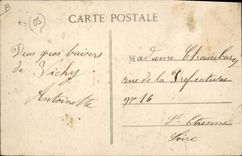 CARTE POSTALE
Deux gros baisers
de Vichy
Antoinette
Madame
rue de la Préfecture
nº 16
St Etienne
Loire